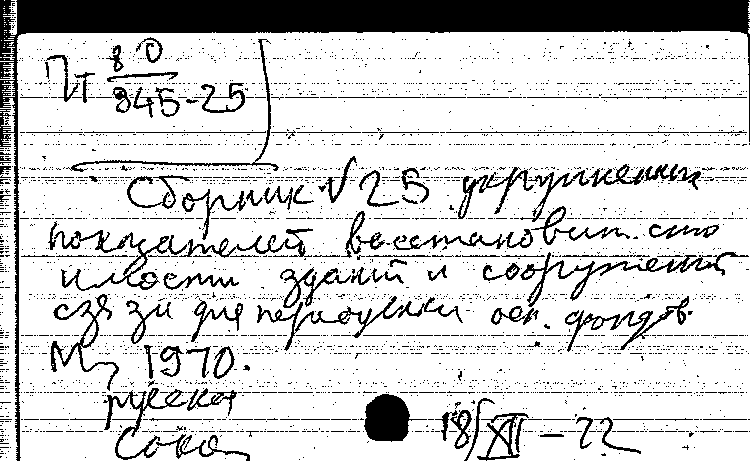 Пт 80
845-25
Сборник № 25 укрупненных
показателей восстановит. сто
имости зданий и сооружений
связи для переоценки осн. фондов.
М, 1970.
русская
18/XII - 72